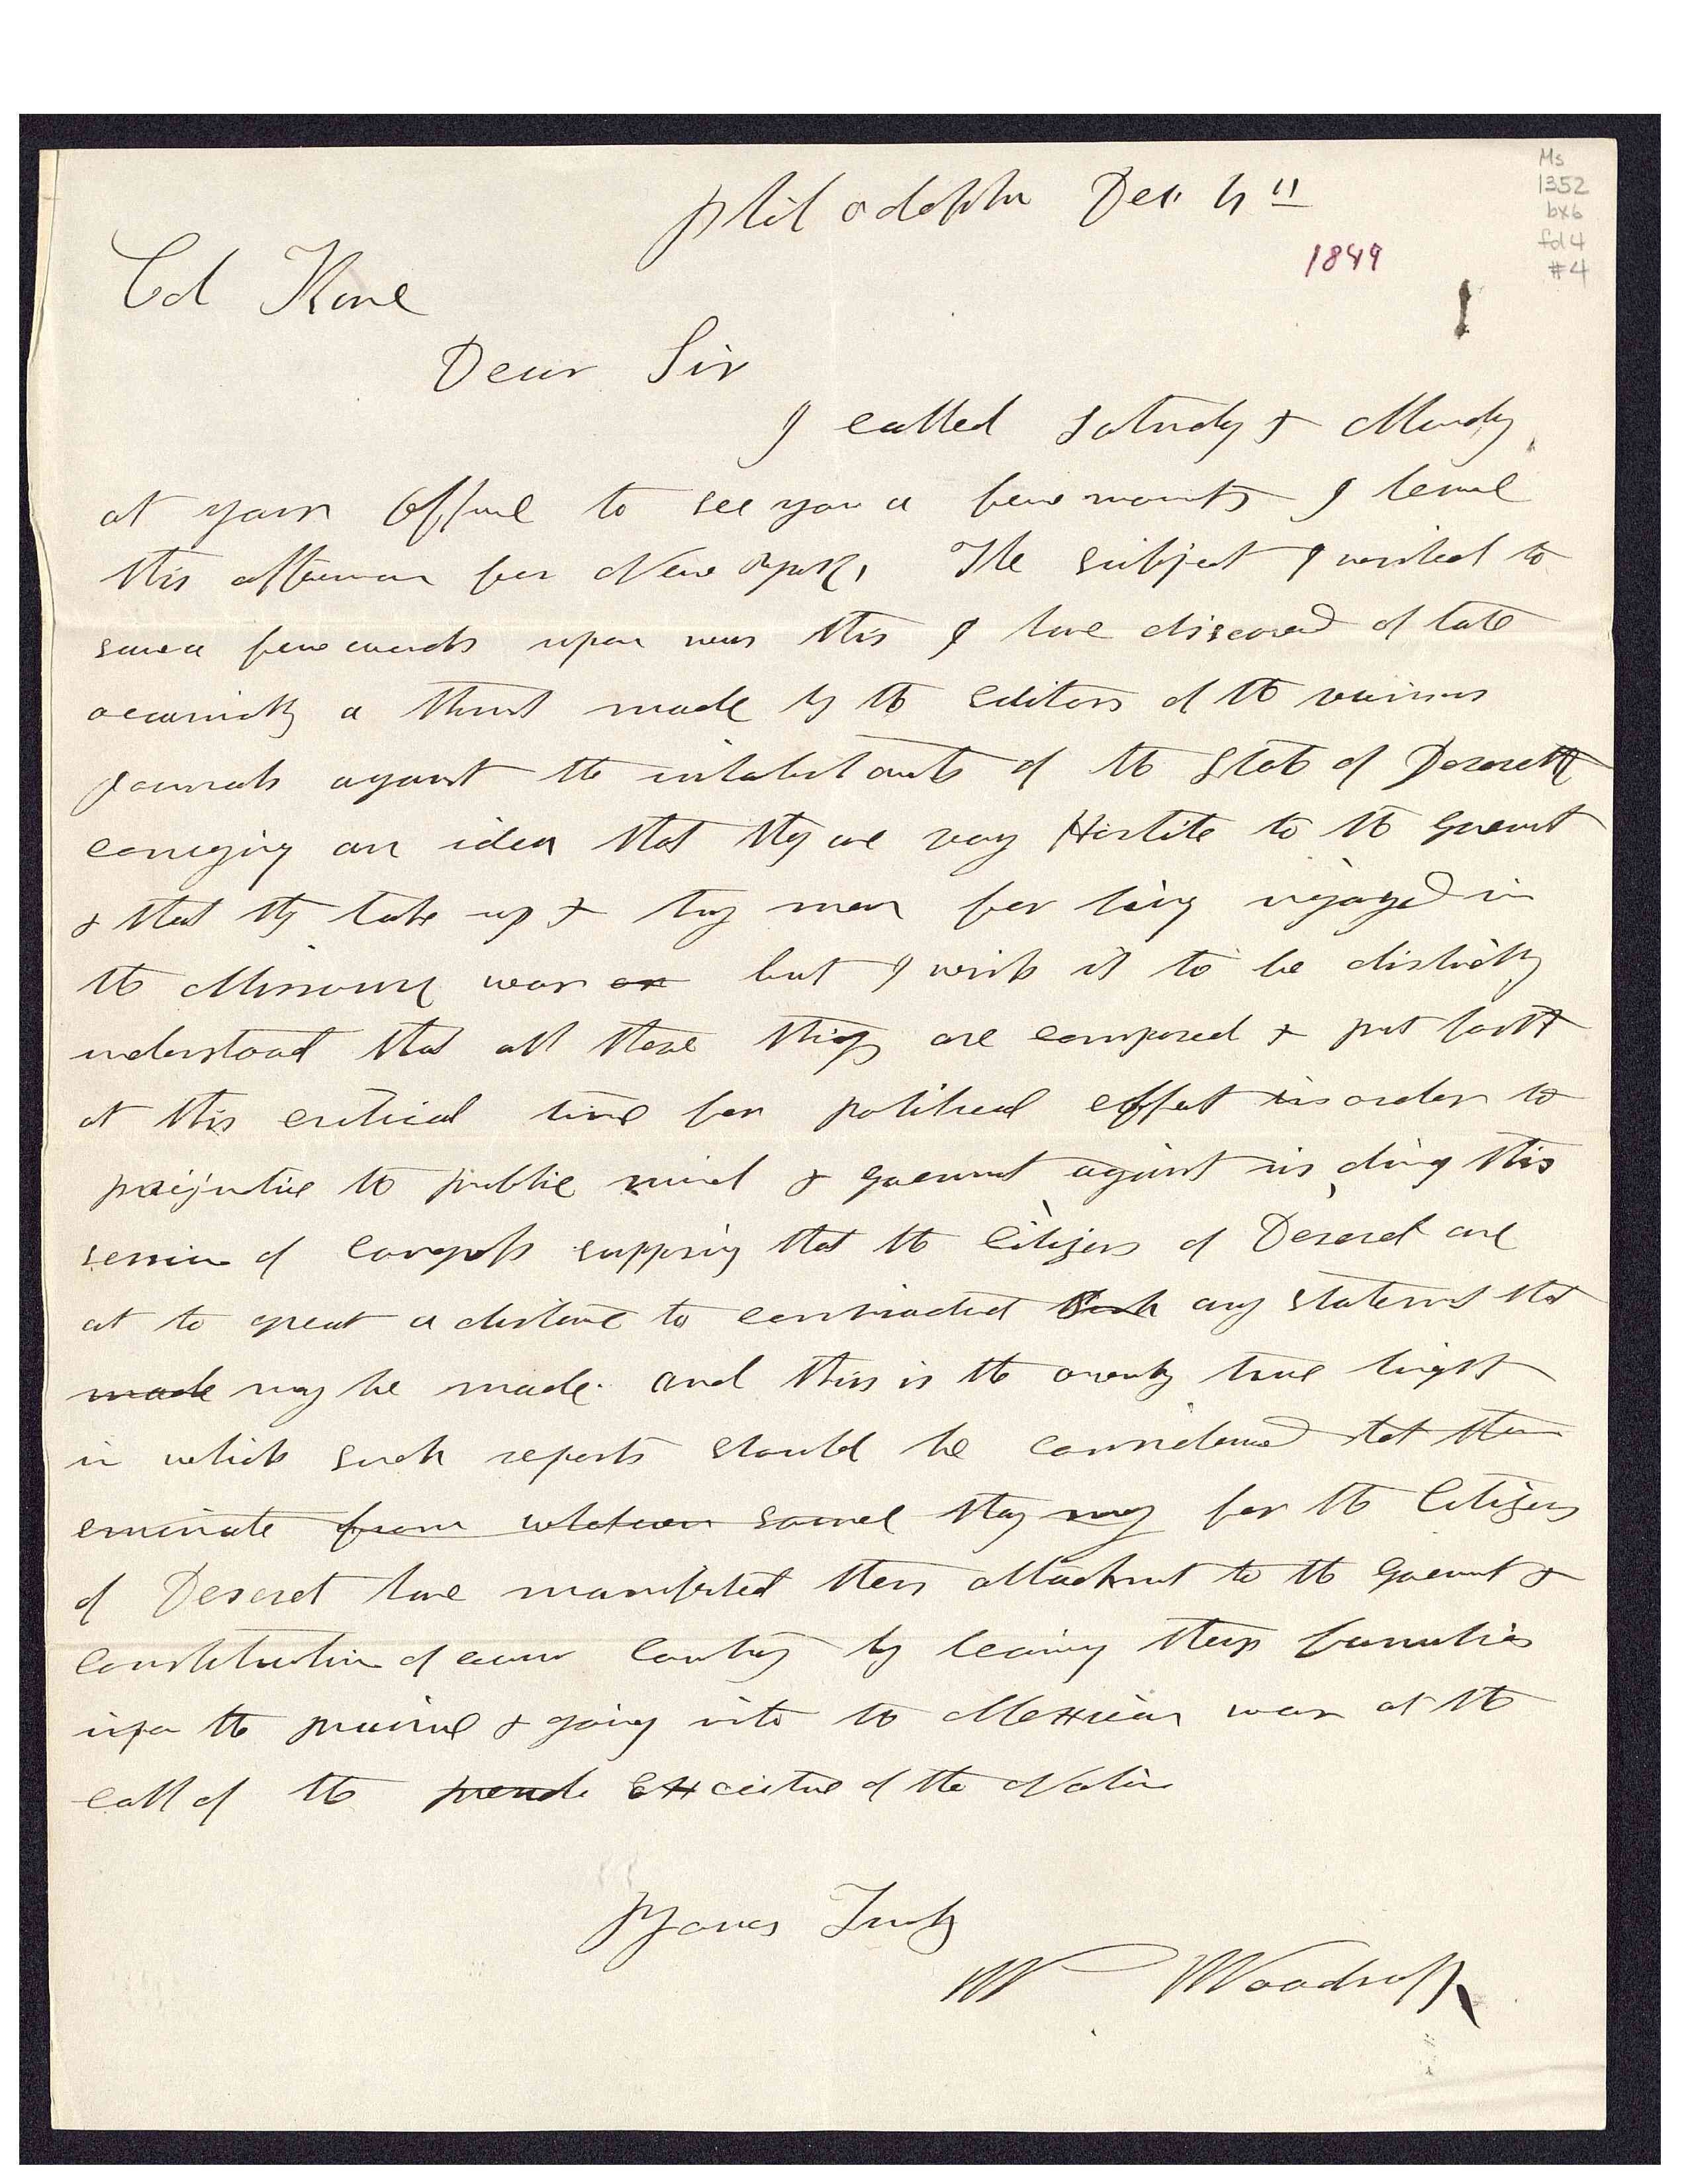 Ms
1352
bx6
fd 4
#4
Philadelpha Dec 4"
1849
Col Kane
Dear Sir
I called Saturdy & Mondy
at your Office to see you a few momts I leave
this afternoon for New York, The subject I wished to
say a few words upon was this I have discovered of late
occasionally a thrust made by the editors of the various
Journals against the inhabitants of the State of Deseret
conveying an idea that they are very Hostile to the goverment
& that they take up & try men for being ingaged in
the Missouri war or but I wish it to be distinctly
understood that all these things are composed & put forth
at this critical time for political effect in order to
preijudice the public mind & goverment against us during this
session of Congress supposing that the Citizens of Deseret are
at to great a distance to contradict Such any statement that
made may be made and this is the ownly true light
in which such reports should be considered let them
eminate from whatever source they may for the Citizens
of Deseret have manifested their attachment to the goverment &
constitution of our Country by leaving their families
upon the prairie & going into the Mexican war at the
call of the Executive of the Nation
Yours Truly
W Woodruff